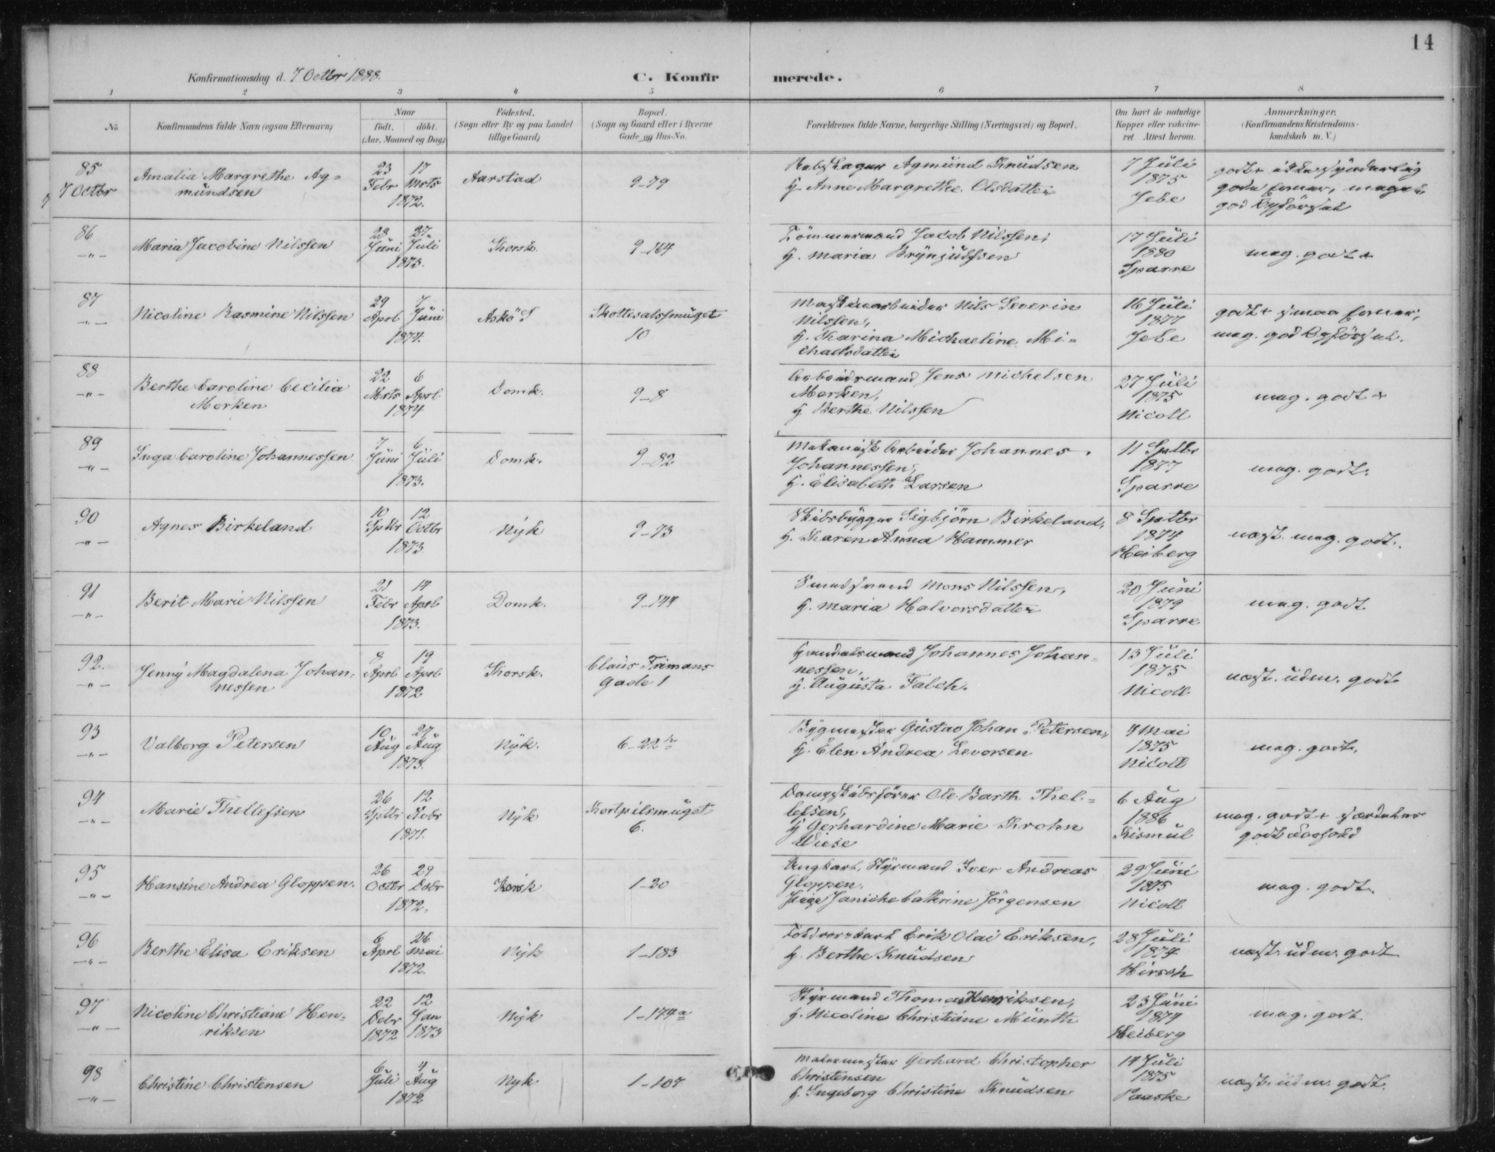 14
Konfirmationsdag d. 7 Octbr 1888.
C. Konfirmerede.
1 2 3 4 5 6 7 8
No
Konfirmandens fulde Navn (ogsaa Efternavn)
Naar
født. døbt.
(Aar, Maaned og Dag)
Fødested.
(Sogn eller By og paa Landet tillige Gaard)
Bopæl.
(Sogn og Gaard eller i Byerne Gade og Hus-No.
Forældrenes fulde Navne, borgerlige Stilling (Næringsvei) og Bopæl.
Om havt de naturlige Kopper eller vaccineret. Attest herom.
Anmerkninger.
(Konfirmandens Kristendomskundskab m. V.)
85
7 Octbr
Amalia Margrethe Agmundsen
23 Febr 17 Mrts 1872.
Aarstad
9-79
Agmund Knudsen
H. Anne Margrethe Olsdatter
7 Juli 1875 Jebe
86
-"-
Maria Jacobine Nilssen
28 Juni 27 Juli 1873.
Korsk.
9-164
Tømmermand Jacob Nilssen,
H. Maria Brynjulfsen
17 Juli 1880 Sparre
mag. godt
87
-"-
Nicoline Rasmine Nilssen
29 Aprl 7 Juni 1874.
Askö S
Skottesalssmuget 10
Maskinarbeider Nils Severin Nilssen,
H. Karina Michaeline Michaelsdatter
16 Juli 1877 Jebe
88
-"-
Berthe Caroline Cecilia Morken
22 Mrts 6 Aprl 1874
Domk.
9-8
Arbeidsmand Jens Michelsen Morken,
H. Berthe Nilssen
27 Juli 1875 Nicoll
mag. godt
89
-"-
Inga Caroline Johannessen
7 Juni 6 Juli 1873.
Domk.
9-82
Mekanisk Arbeider Johannes Johannessen,
H. Elisabeth Larsen
11 Sptbr 1877 Sparre
mag. godt.
90
-"-
Agnes Birkeland
10 Sptbr 12 Octbr 1873
Nyk
9-73
Skibsbygger Sigbjörn Birkeland,
H. Karen Anna Hammer
8 Sptbr 1874 Heiberg
næst. mag. godt.
91
-"-
Berit Marie Nilssen
21 Febr 14 Aprl 1873.
Domk.
9-144
Mons Nilssen,
H. Maria Halvorsdatter
20 Juni 1879 Sparre
mag. godt
92.
-"-
Jenny Magdalena Johannessen
9 Aprl 19 Aprl 1872
Korsk.
Claus Frimans Gade 1
Handelsmand Johannes Johannessen,
H. Augusta Falch.
13 Juli 1875 Nicoll
næst. udm. godt
93
-"-
Valborg Petersen
10 Aug 27 Aug 1873.
Nyk.
6-22
Bygmester Gustav Johan Petersen,
H. Elen Andrea Levorsen
7 Mai 1875 Nicoll
mag. godt.
94
-"-
Marie Thellefsen
26 Sptbr 12 Novbr 1871.
Nyk
Kortpilsmuget 6.
Dampskibsfører Ole Barth Thellefsen,
H. Gerhardine Marie Krohn Wiese
6 Aug 1886 Rismul
95
-"-
Hansine Andrea Gloppen.
26 Octbr 29 Debr 1872.
Korsk
1-20
Ungkarl Styrmand Iver Andreas Gloppen.
Pige Janiche Cathrine Jörgensen
29 Juni 1875 Nicoll
mag. godt.
96
-"-
Berthe Elisa Eriksen
6 Aprl 26 Mai 1872
Nyk
1-183
Erik Olai Eriksen,
H. Berthe Knudsen
28 Juli 1874 Hirsch
næst. udm. godt
97
-"-
Nicoline Christiane Henriksen
22 Debr 1872 12 Jan 1873
Nyk
1-174a
Styrmand Thomas Henriksen,
H. Nicoline Christiane Munth
23 Juni 1874 Heiberg
mag. godt
98
-"-
Christine Christensen
6 Juli 4 Aug 1872
Nyk
1-107
Malermester Gerhard Christopher Christensen
H. Ingeborg Christine Knudsen
14 Juli 1875 Paaske
næst. udm. godt.